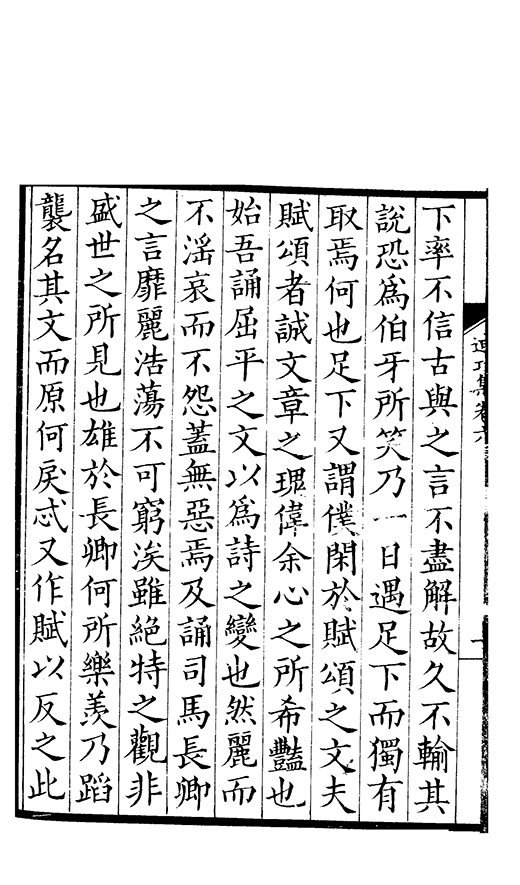 迪功集卷六
下率不信古與之言不盡解故久不輸其
說恐爲伯牙所笑乃一日遇足下而獨有
取焉何也足下又謂僕閑於賦頌之文夫
賦頌者誠文章之瑰偉余心之所希豔也
始吾誦屈平之文以爲詩之變也然麗而
不滛哀而不怨蓋無惡焉及誦司馬長卿
之言靡麗浩蕩不可窮涘雖絶特之觀非
盛世之所見也雄於長卿何所樂羨乃蹈
襲名其文而原何戾忒又作賦以反之此